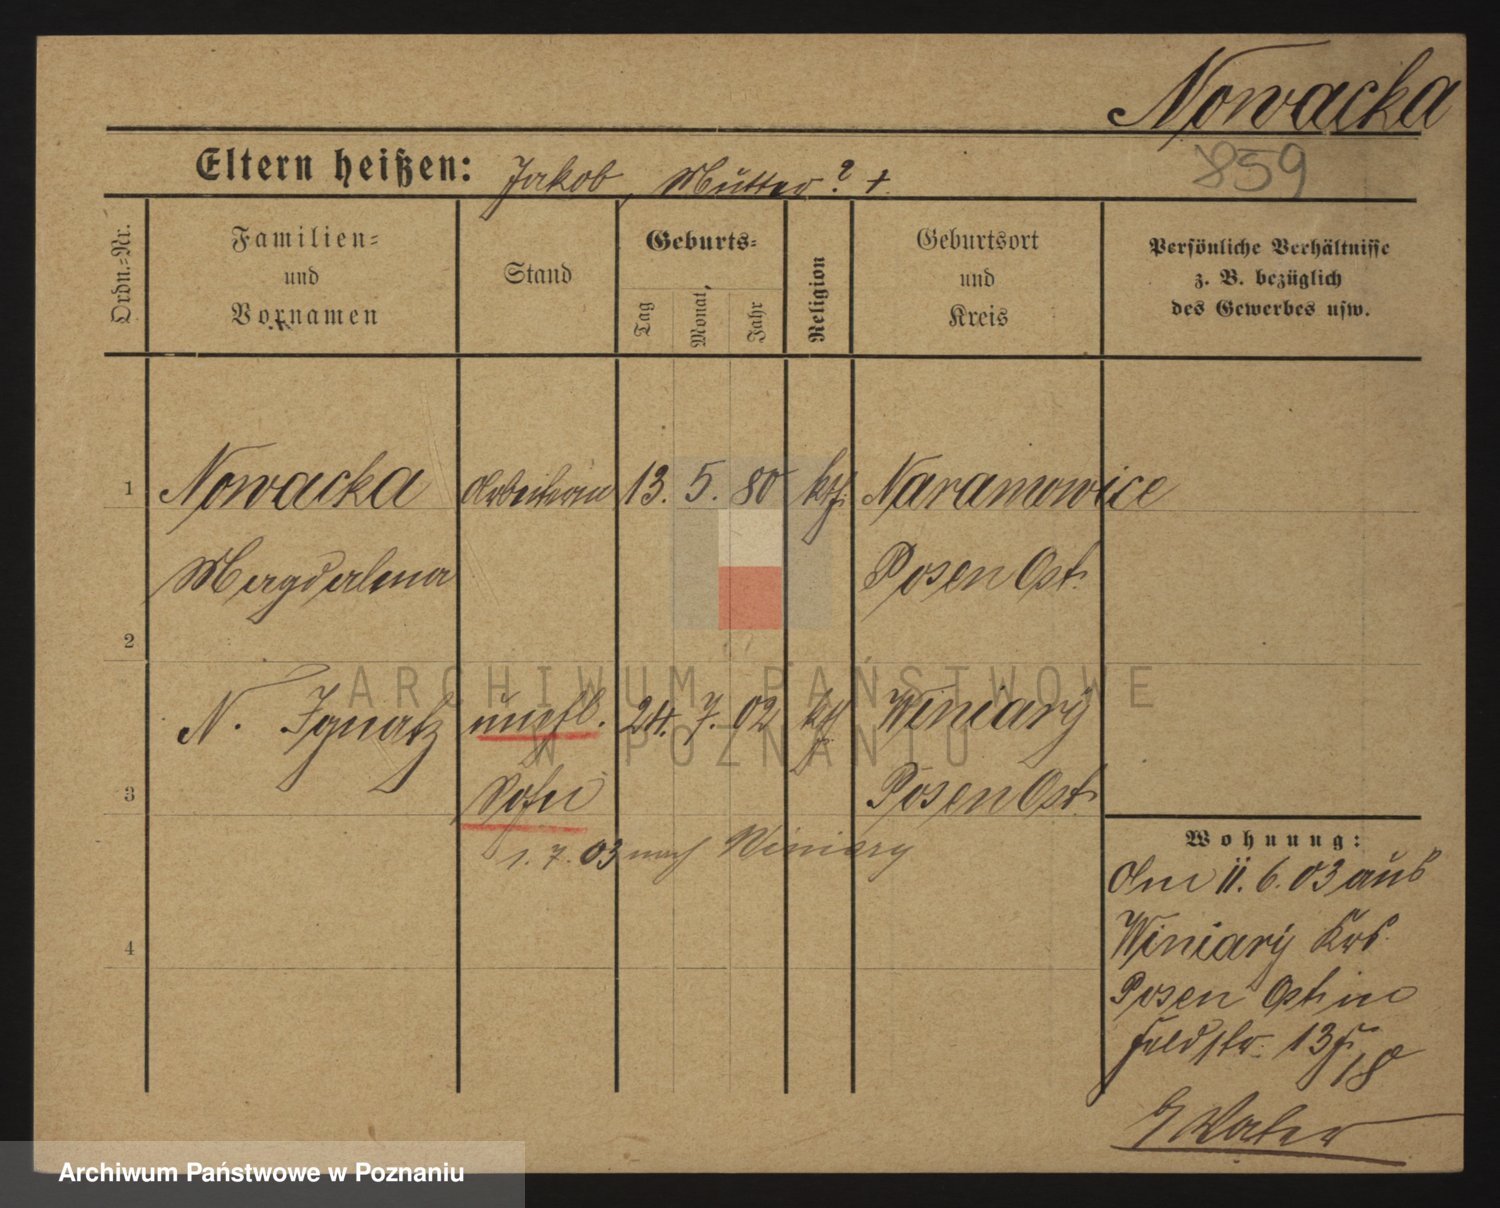 Nowacka
859
Eltern heißen: Jakob, Mutter? +
Ordn.-Nr.
Familien- und Vornamen
Stand
Geburts-
Tag
Monat,
Jahr
Religion
Geburtsort und Kreis
Persönliche Verhältnisse
z. B. bezüglich
des Gewerbes usw.
1 Nowacka Arbeiterin 13. 5. 80 kth. Naramowice
Magdalena Posen Ost.
2
N. Ignatz unehl. 24. 7. 02 kth Winiary
3 Sohn Posen Ost.
1. 7. 03 nach Winiary
4
Wohnung:
Am 11. 6. 03 aus
Winiary Krs.
Posen Ost in
Feldstr. 13
ARCHIWUM PAŃSTWOWE
W POZNANIU
Archiwum Państwowe w Poznaniu